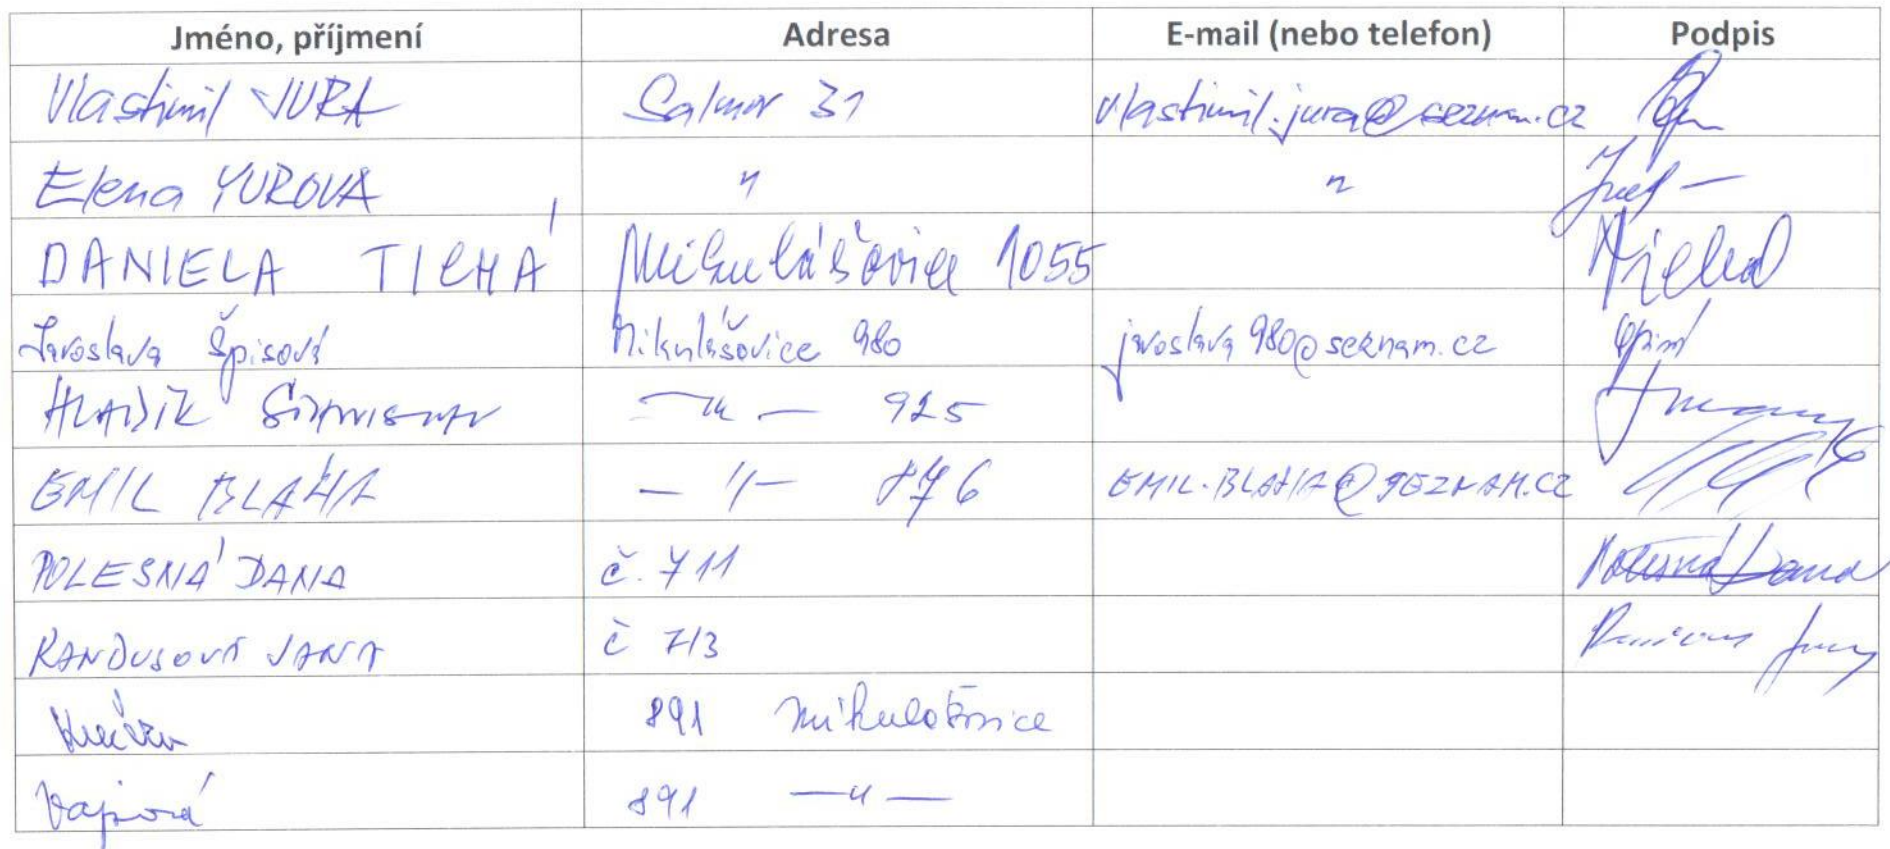 Jméno, příjmení Adresa E-mail (nebo telefon) Podpis
Vlastimil JURA Salmov 31 vlastimil.jura@seznam.cz
Elena YUROVA " "
DANIELA TICHÁ Mikulášovice 1055 Tichá
Jaroslava Špisová Mikulášovice 980 jaroslava980@seznam.cz
HLADÍK STANISLAV —"— 925
EMIL BLAHA —"— 876 EMIL.BLAHA@SEZNAM.CZ
POLESNÁ DANA č. 711 Polesná Dana
KANDUSOVÁ JANA č 713
891 Mikulášovice
Vajsová 891 —"—